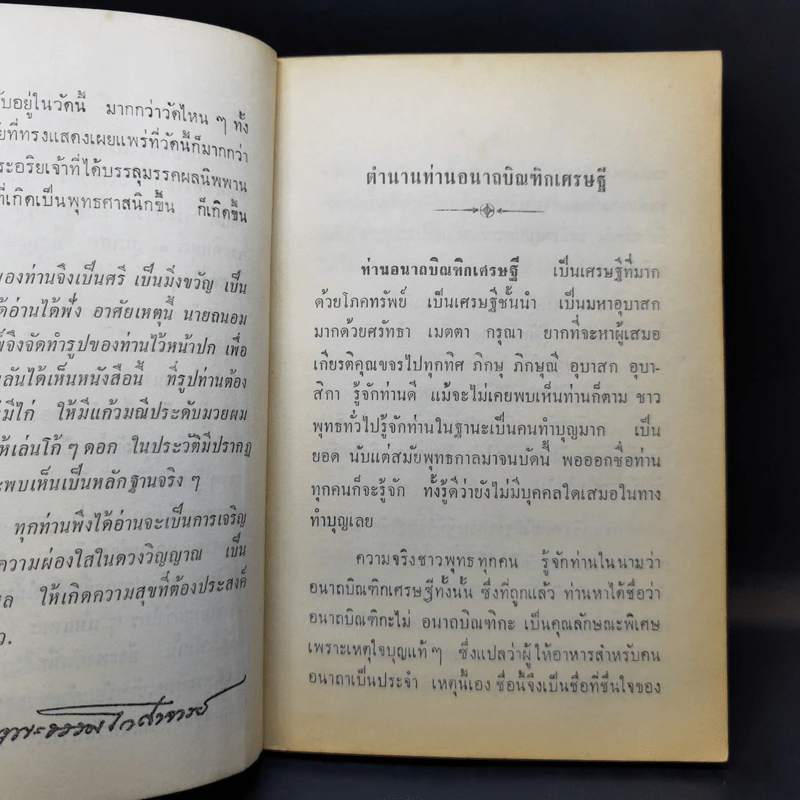 บอยู่ในวัดนี้ มากกว่าวัดไหน ๆ ทั้ง
ที่ทรงแสดงเผยแพร่ที่วัดนี้ก็มากกว่า
ระอริยเจ้าที่ได้บรรลุมรรคผลนิพพาน
ที่เกิดเป็นพุทธศาสนิกขึ้น ก็เกิดขึ้น
องท่านจึงเป็นศรี เป็นมิ่งขวัญ เป็น
ได้อ่านได้ฟัง อาศัยเหตุนี้ นายถนอม
จึงจัดทำรูปของท่านไว้หน้าปก เพื่อ
ลันได้เห็นหนังสือนี้ ที่รูปท่านต้อง
มีไก่ ให้มีแก้วมณีประดับมวยผม
ห้เล่นโก้ ๆ ดอก ในประวัติมีปรากฏ
ะพบเห็นเป็นหลักฐานจริง ๆ
ทุกท่านพึงได้อ่านจะเป็นการเจริญ
ความผ่องใสในดวงวิญญาณ เป็น
ล ให้เกิดความสุขที่ต้องประสงค์
ว.
ตำนานท่านอนาถบิณฑิกเศรษฐี
ท่านอนาถบิณฑิกเศรษฐี เป็นเศรษฐีที่มาก
ด้วยโภคทรัพย์ เป็นเศรษฐีชั้นนำ เป็นมหาอุบาสก
มากด้วยศรัทธา เมตตา กรุณา ยากที่จะหาผู้เสมอ
เกียรติคุณขจรไปทุกทิศ ภิกษุ ภิกษุณี อุบาสก อุบา-
สิกา รู้จักท่านดี แม้จะไม่เคยพบเห็นท่านก็ตาม ชาว
พุทธทั่วไปรู้จักท่านในฐานะเป็นคนทำบุญมาก เป็น
ยอด นับแต่สมัยพุทธกาลมาจนบัดนี้ พอออกชื่อท่าน
ทุกคนก็จะรู้จัก ทั้งรู้ดีว่ายังไม่มีบุคคลใดเสมอในทาง
ทำบุญเลย
ความจริงชาวพุทธทุกคน รู้จักท่านในนามว่า
อนาถบิณฑิกเศรษฐีทั้งนั้น ซึ่งที่ถูกแล้ว ท่านหาได้ชื่อว่า
อนาถบิณฑิกะไม่ อนาถบิณฑิกะ เป็นคุณลักษณะพิเศษ
เพราะเหตุใจบุญแท้ ๆ ซึ่งแปลว่าผู้ให้อาหารสำหรับคน
อนาถาเป็นประจำ เหตุนี้เอง ชื่อนี้จึงเป็นชื่อที่ชื่นใจของ